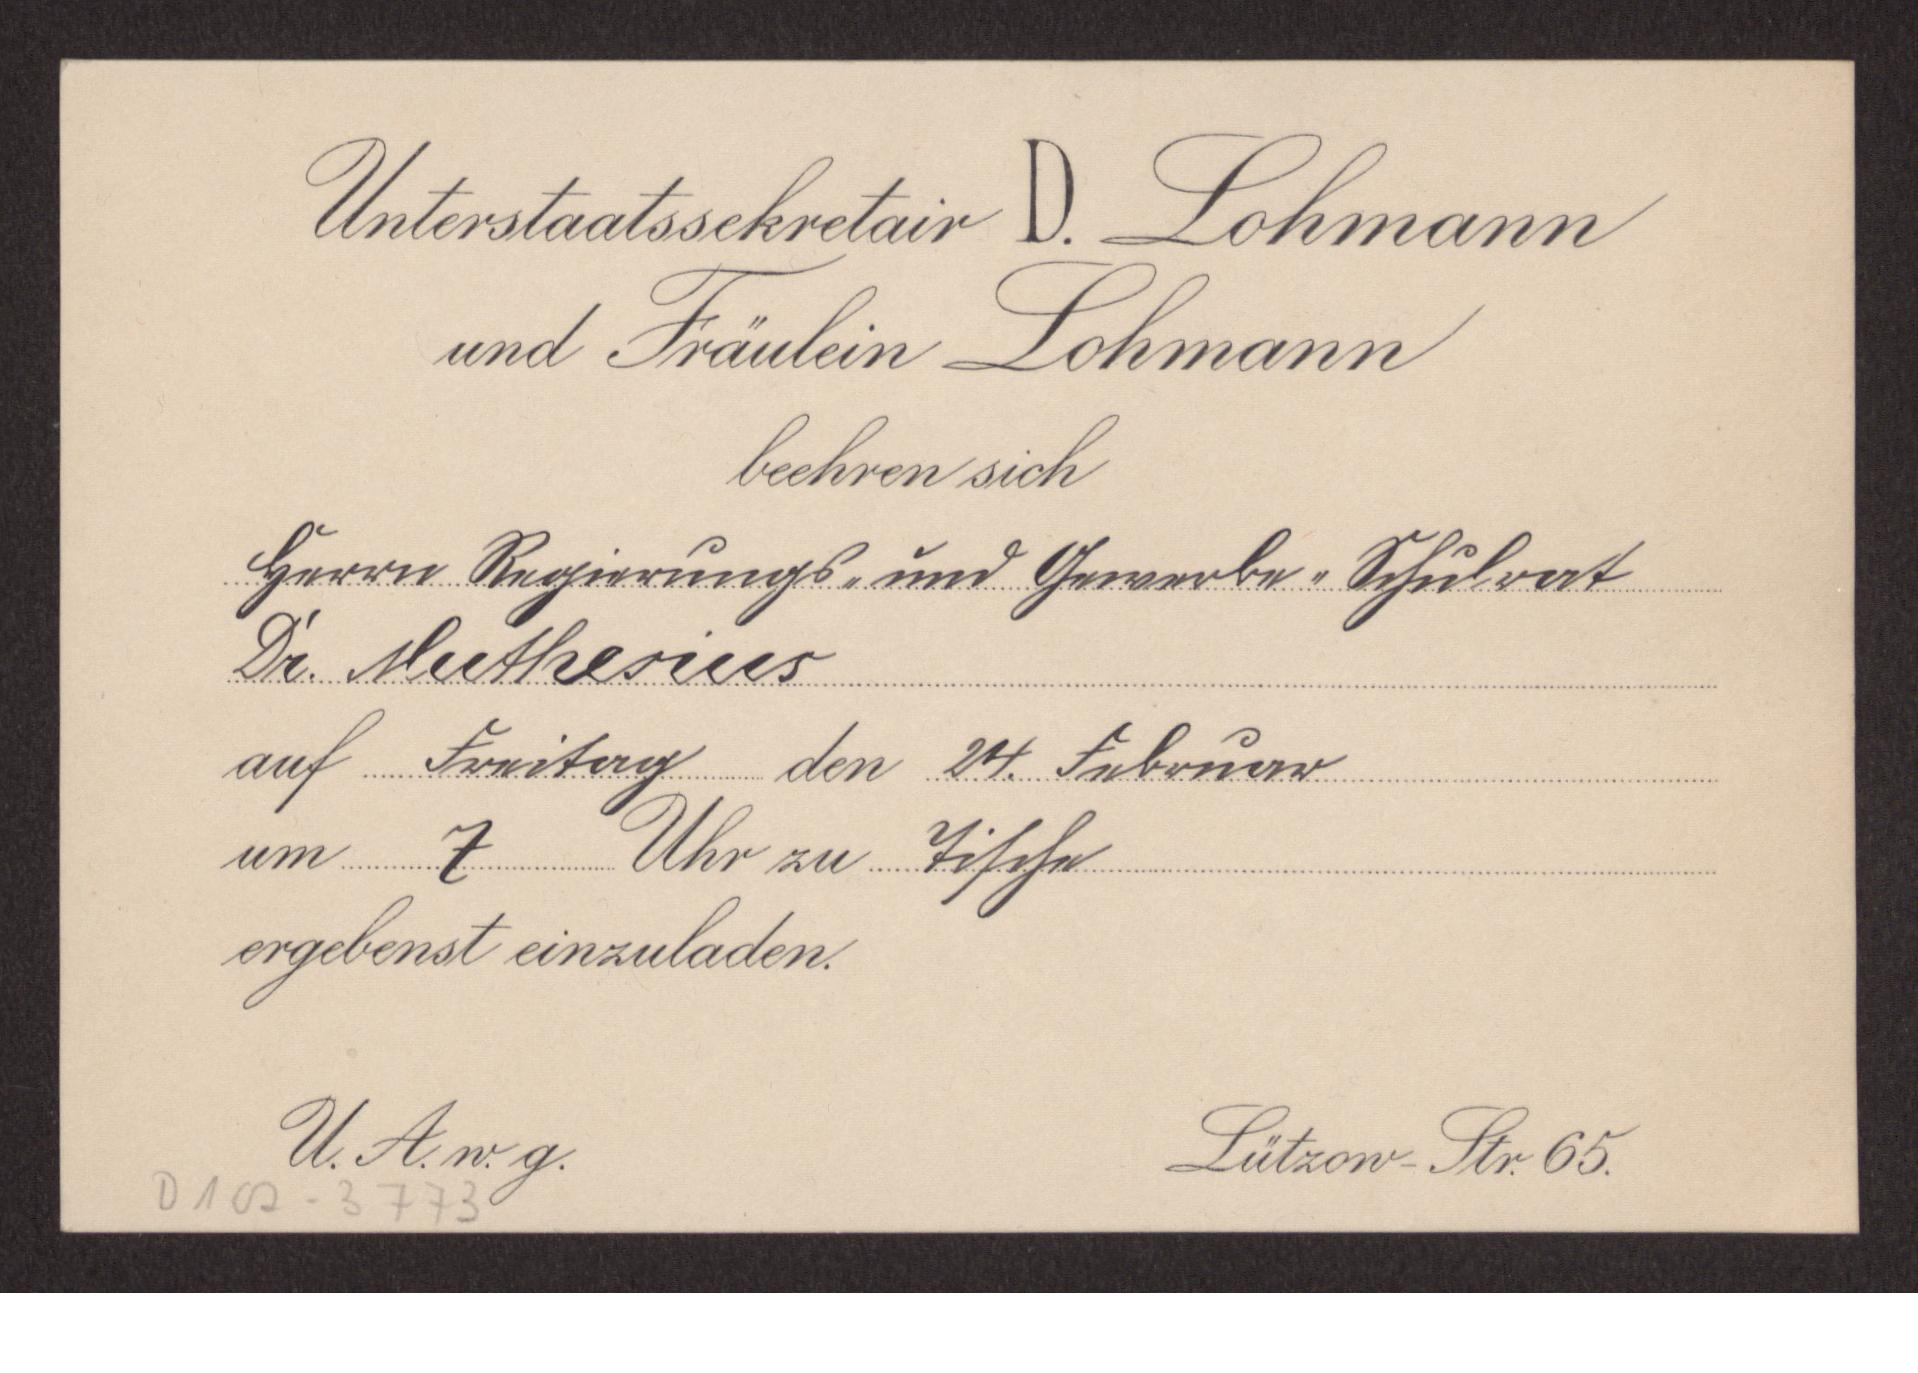 Unterstaatssekretair D. Lohmann
und Fräulein Lohmann
beehren sich
Herrn Regierungs- und Gewerbe-Schulrat
Dr. Muthesius
auf Freitag den 24. Februar
um 7 Uhr zu Tische
ergebenst einzuladen.
U. A. w. g. Lützow-Str. 65.
D 102-3773